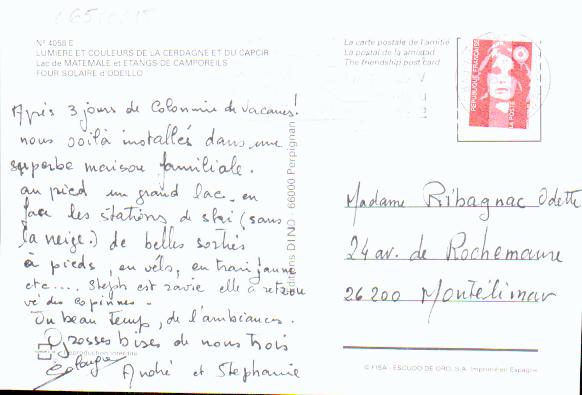 Nº 4058 E
LUMIERE ET COULEURS DE LA CERDAGNE ET DU CAPCIR
Lac de MATEMALE et ETANGS DE CAMPOREILS
FOUR SOLAIRE d'ODEILLO
La carte postale de l'amitié
La postal de la amistad
The friendship post card
REPUBLIQUE FRANÇAISE
LA POSTE
Après 3 jours de Colonnie de vacances!
nous voilà installés dans une
superbe maison familiale.
au pied un grand lac. en
face les stations de ski (sans
la neige.) de belles sorties
à pieds, en vélo, en train jaune
etc.... Steph est ravie elle a retrou
vé des copines.
Un beau temps, de l'ambiances.
Grosses bises de nous trois
Solange
André et Stephanie
Editions DINO - 66000 Perpignan
reproduction interdite
Madame Ribagnac Odette
24 av. de Rochemaure
26200 Montélimar
© FISA - ESCUDO DE ORO, S.A. Imprimé en Espagne